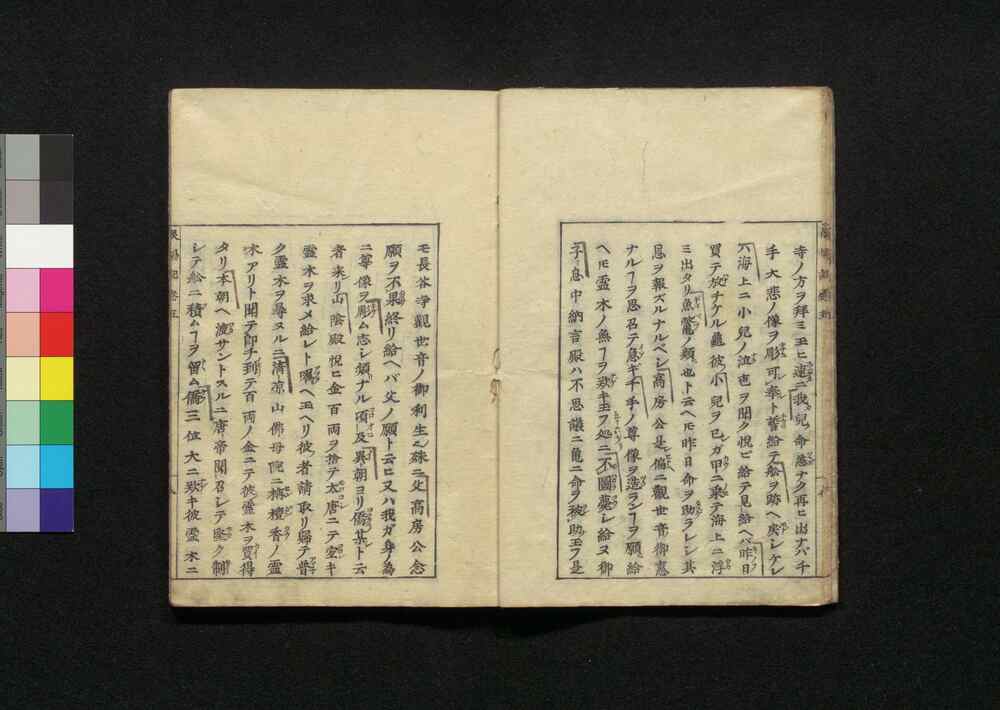 寺ノ方ヲ拜ミ玉ヒ速ニ我兒命恙ナク再ヒ出ナバ千
手大悲ノ像ヲ彫可奉ト誓給テ舩ヲ跡ヘ戻シケレ
バ海上ニ小兒ノ泣声ヲ聞ク悦ビ給テ見給ヘバ昨日
買テ放ナケル龜彼小兒ヲ已ガ甲ニ乘テ海上ニ浮
ミ出タリ魚鼈ノ類也ト云ヘ𪜈昨日命ヲ助ラレシ其
恩ヲ報ズルナルベシ高房公是偏ニ觀世音御惠
ナルヿヲ思召テ急ギ千手ノ尊像ヲ造ランヿヲ願給
ヘ𪜈霊木ノ無ヿヲ歎キ玉フ処ニ不圖薨シ給ヌ御
子息中納言殿ハ不思議ニ龜ニ命ヲ被助玉フ是
モ長谷寺觀世音ノ御利生也殊ニ父高房公念
願ヲ不果終リ給ヘバ父ノ願ト云ヒ又ハ我ガ身ノ為
ニ尊像ヲ彫ム志シ頻ナル頃及異朝ヨリ僑某ト云
者来リ山陰殿悦ヒ金百両ヲ捨テ太唐ニテ空キ
霊木ヲ求メ給レト囑ヘ玉ヘリ彼者請取リ歸テ普
ク霊木ヲ尋ヌルニ清凉山佛母院ニ栴檀香ノ霊
木アリト聞テ即チ到テ百両ノ金ニテ彼霊木ヲ買得
タリ本朝ヘ渡サントスルニ唐帝聞召シテ堅ク制
シテ給ニ積ムヿヲ留ム僑三位大ニ歎キ彼霊木ニ